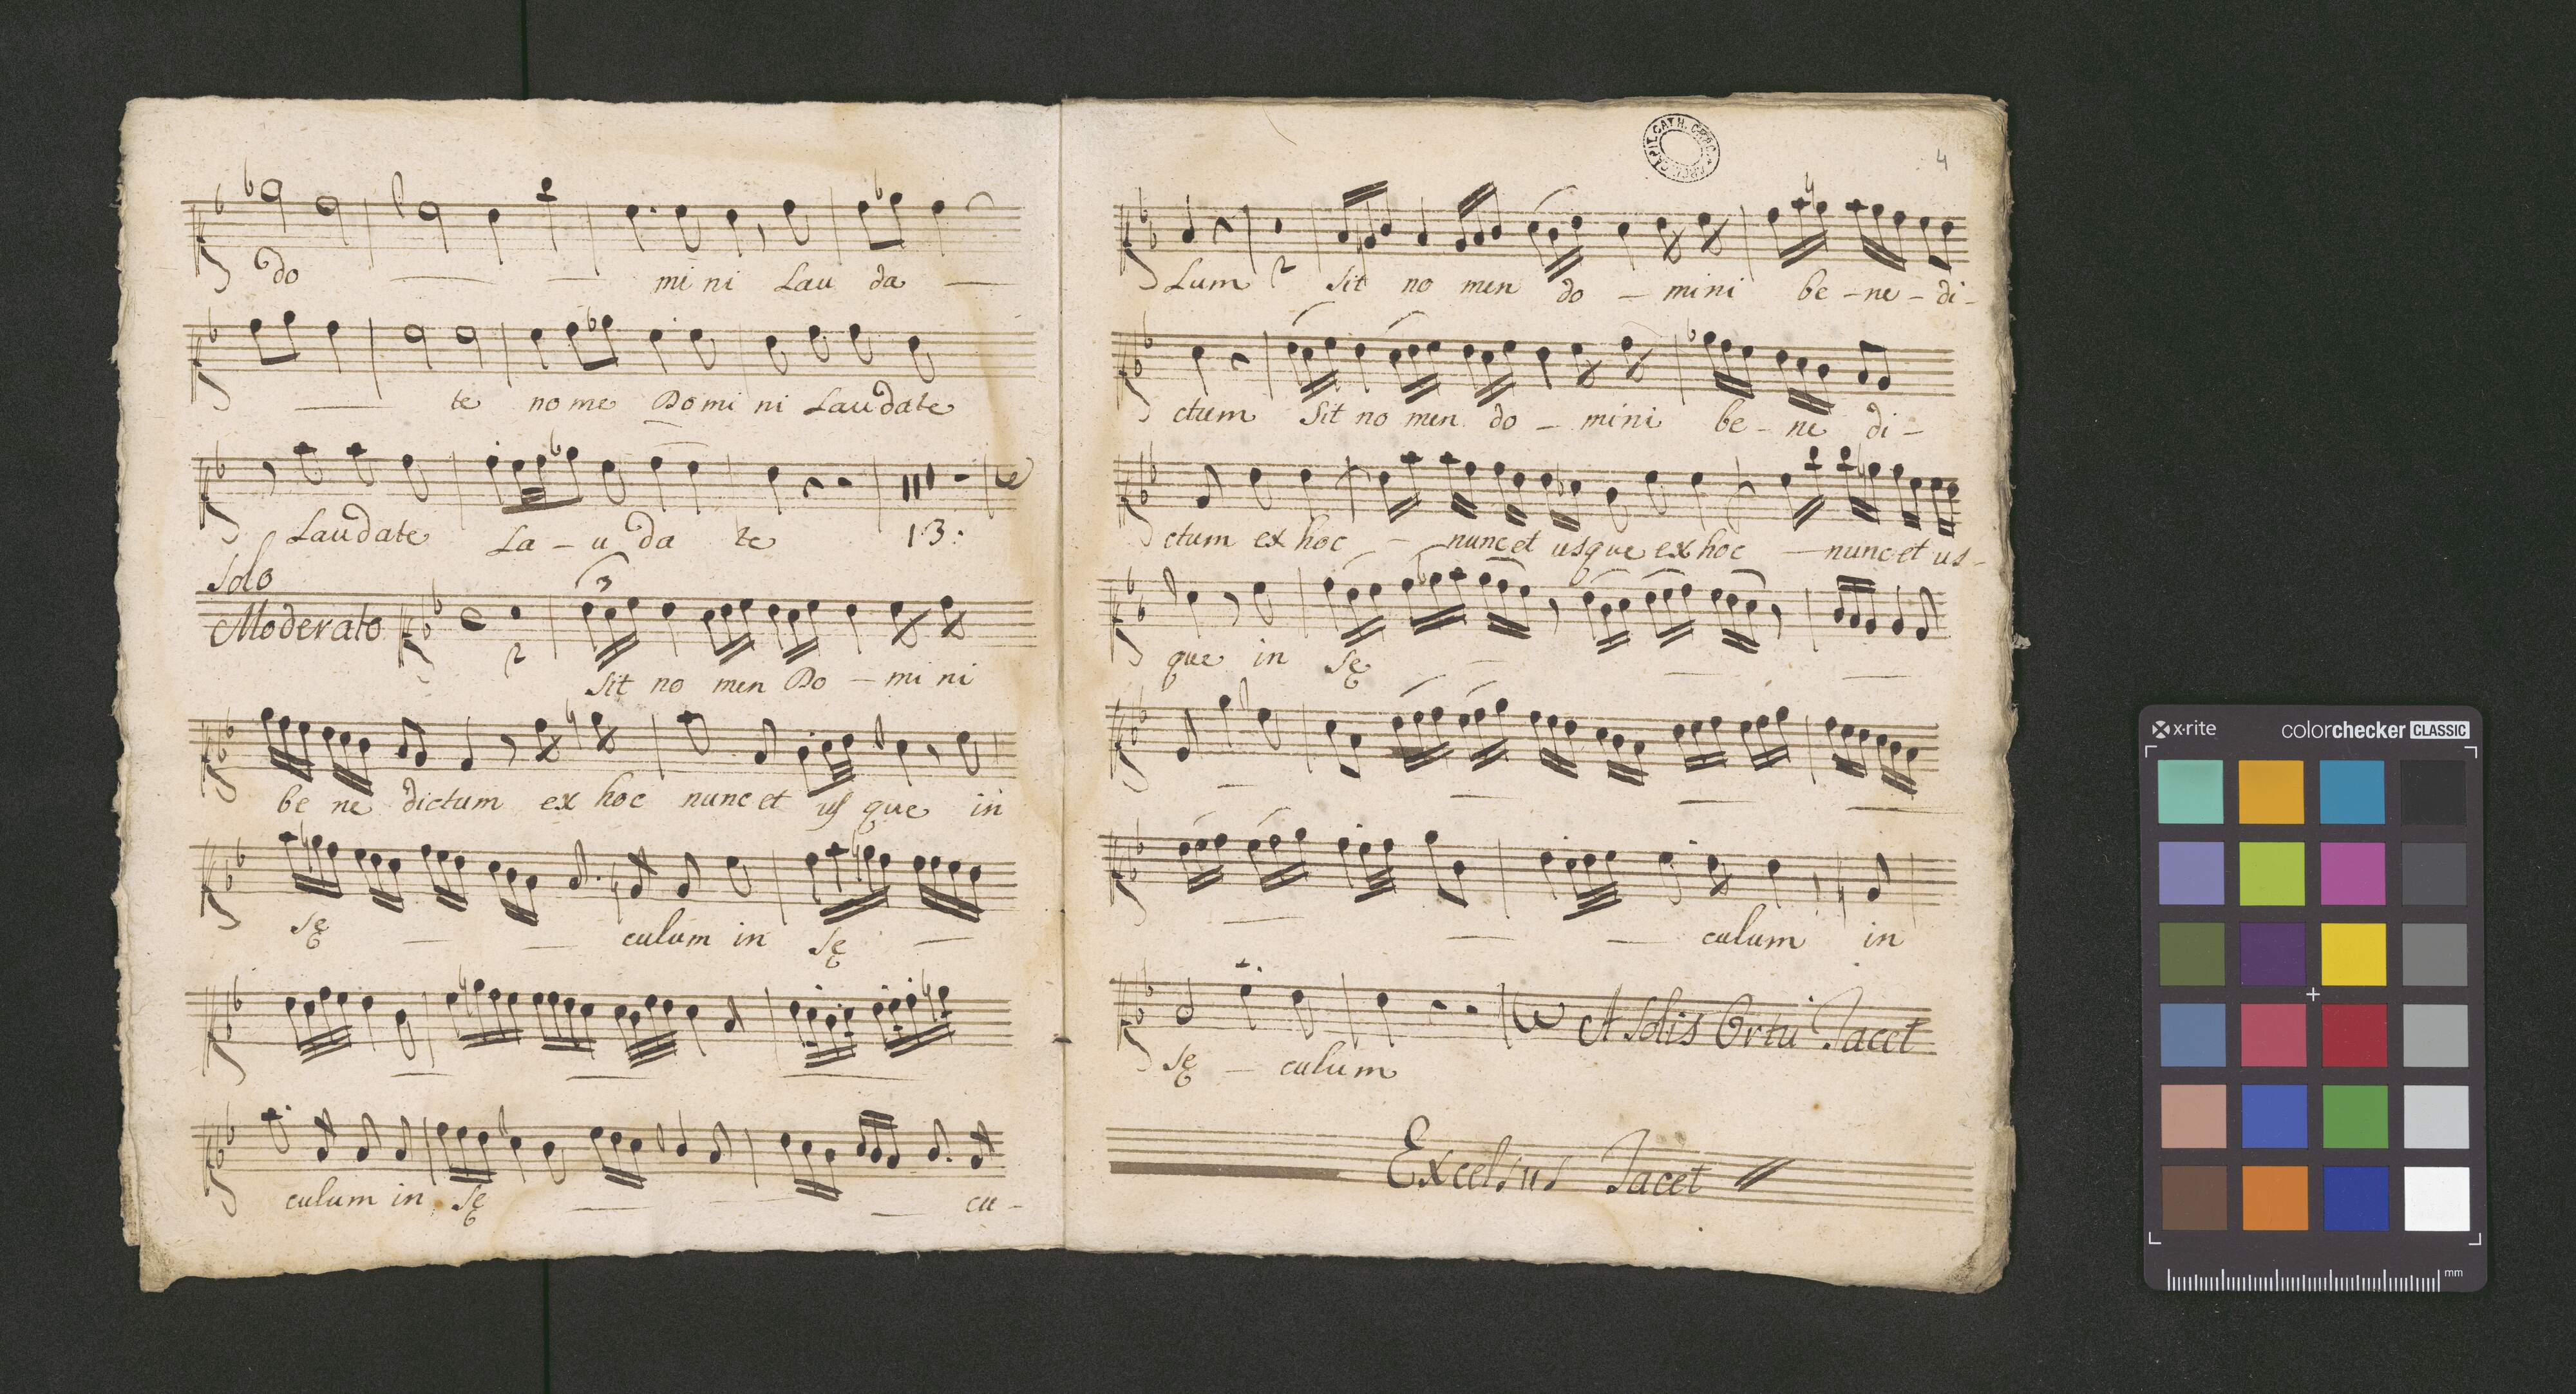 do mi ni Lau da
te no me Domi ni Laudate
Laudate La - u da te 13:
Solo
Moderato
3
2
Sit no men Do - mi ni
be ne dictum ex hoc nunc et us que in
sę culum in sę
culum in sę cu -
4
Lum 2 Sit no men do - mini be - ne - di -
ctum Sit no men do - mini be - ne di -
ctum ex hoc - nunc et usque ex hoc - nunc et us -
que in sę
culum in
A Solis Ortu Tacet
sę - culum
Excelsus Tacet
x-rite colorchecker CLASSIC
mm